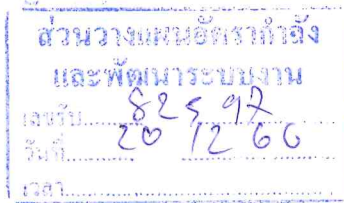 ส่วนวางแผนอัตรากำลัง
และพัฒนาระบบงาน
เลขรับ.....
วันที่..... 20 12 66
เวลา.....